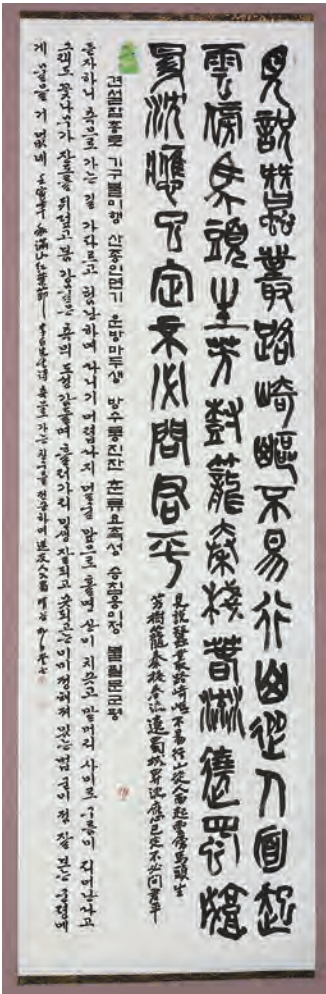 見說蠶叢路崎嶇不易行山從人面起
雲傍馬頭生芳樹籠秦棧春流遶蜀城
升沈應已定不必問君平
見說蠶叢路崎嶇不易行山從人面起雲傍馬頭生
芳樹籠秦棧春流遶蜀城升沈應已定不必問君平
견설잠총로 기구불이행 산종인면기 운방마두생 방수롱진잔 춘류요촉성 승침응이정 불필문군평
듣자하니 촉으로 가는 길 가파르고 험난하여 다니기 어렵다지 얼굴 앞으로 홀연 산이 치솟고 말머리 사이로 구름이 피어난다고
그래도 꽃나무가 잔도를 뒤덮고 봄 강물은 촉의 도성 감돌며 흘러가리 인생 잘되고 못되고는 이미 정해져 있는 법 굳이 점 잘 보는 군평에
게 물을 거 없네 촉으로 가는 친구를 전송하며 送友人入蜀